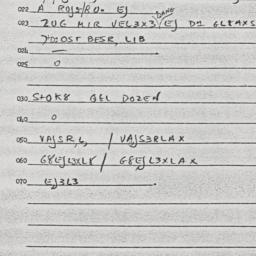 022 A
023 ZUG MIR VEL3X3/EJ D1 GL8AXS
MOST BESR, LIB
024 —
025 0
030 STOK8 GEL DOZEN
040 0
050 VAJSR,L, / VAJS3RLAX
060 G8EJL3XL8 / G8EJL3XLAX
070 EJ3L3